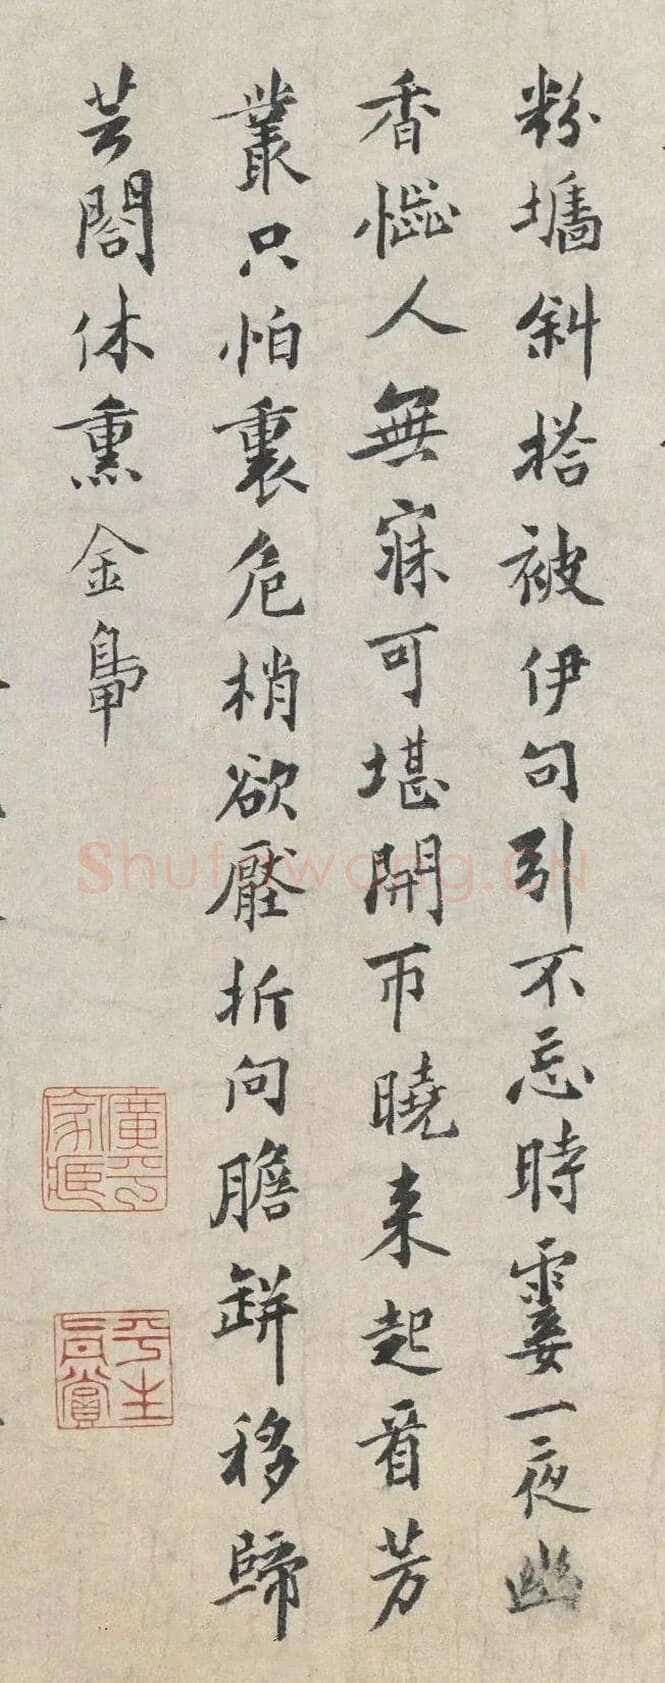 粉墻斜搭被伊句引不忘時霎一夜幽
香惱人無寐可堪開帀曉来起看芳
叢只怕裏危梢欲壓折向膽缾移歸
芸閣休熏金鴨
平生真賞
Shufawang.CN